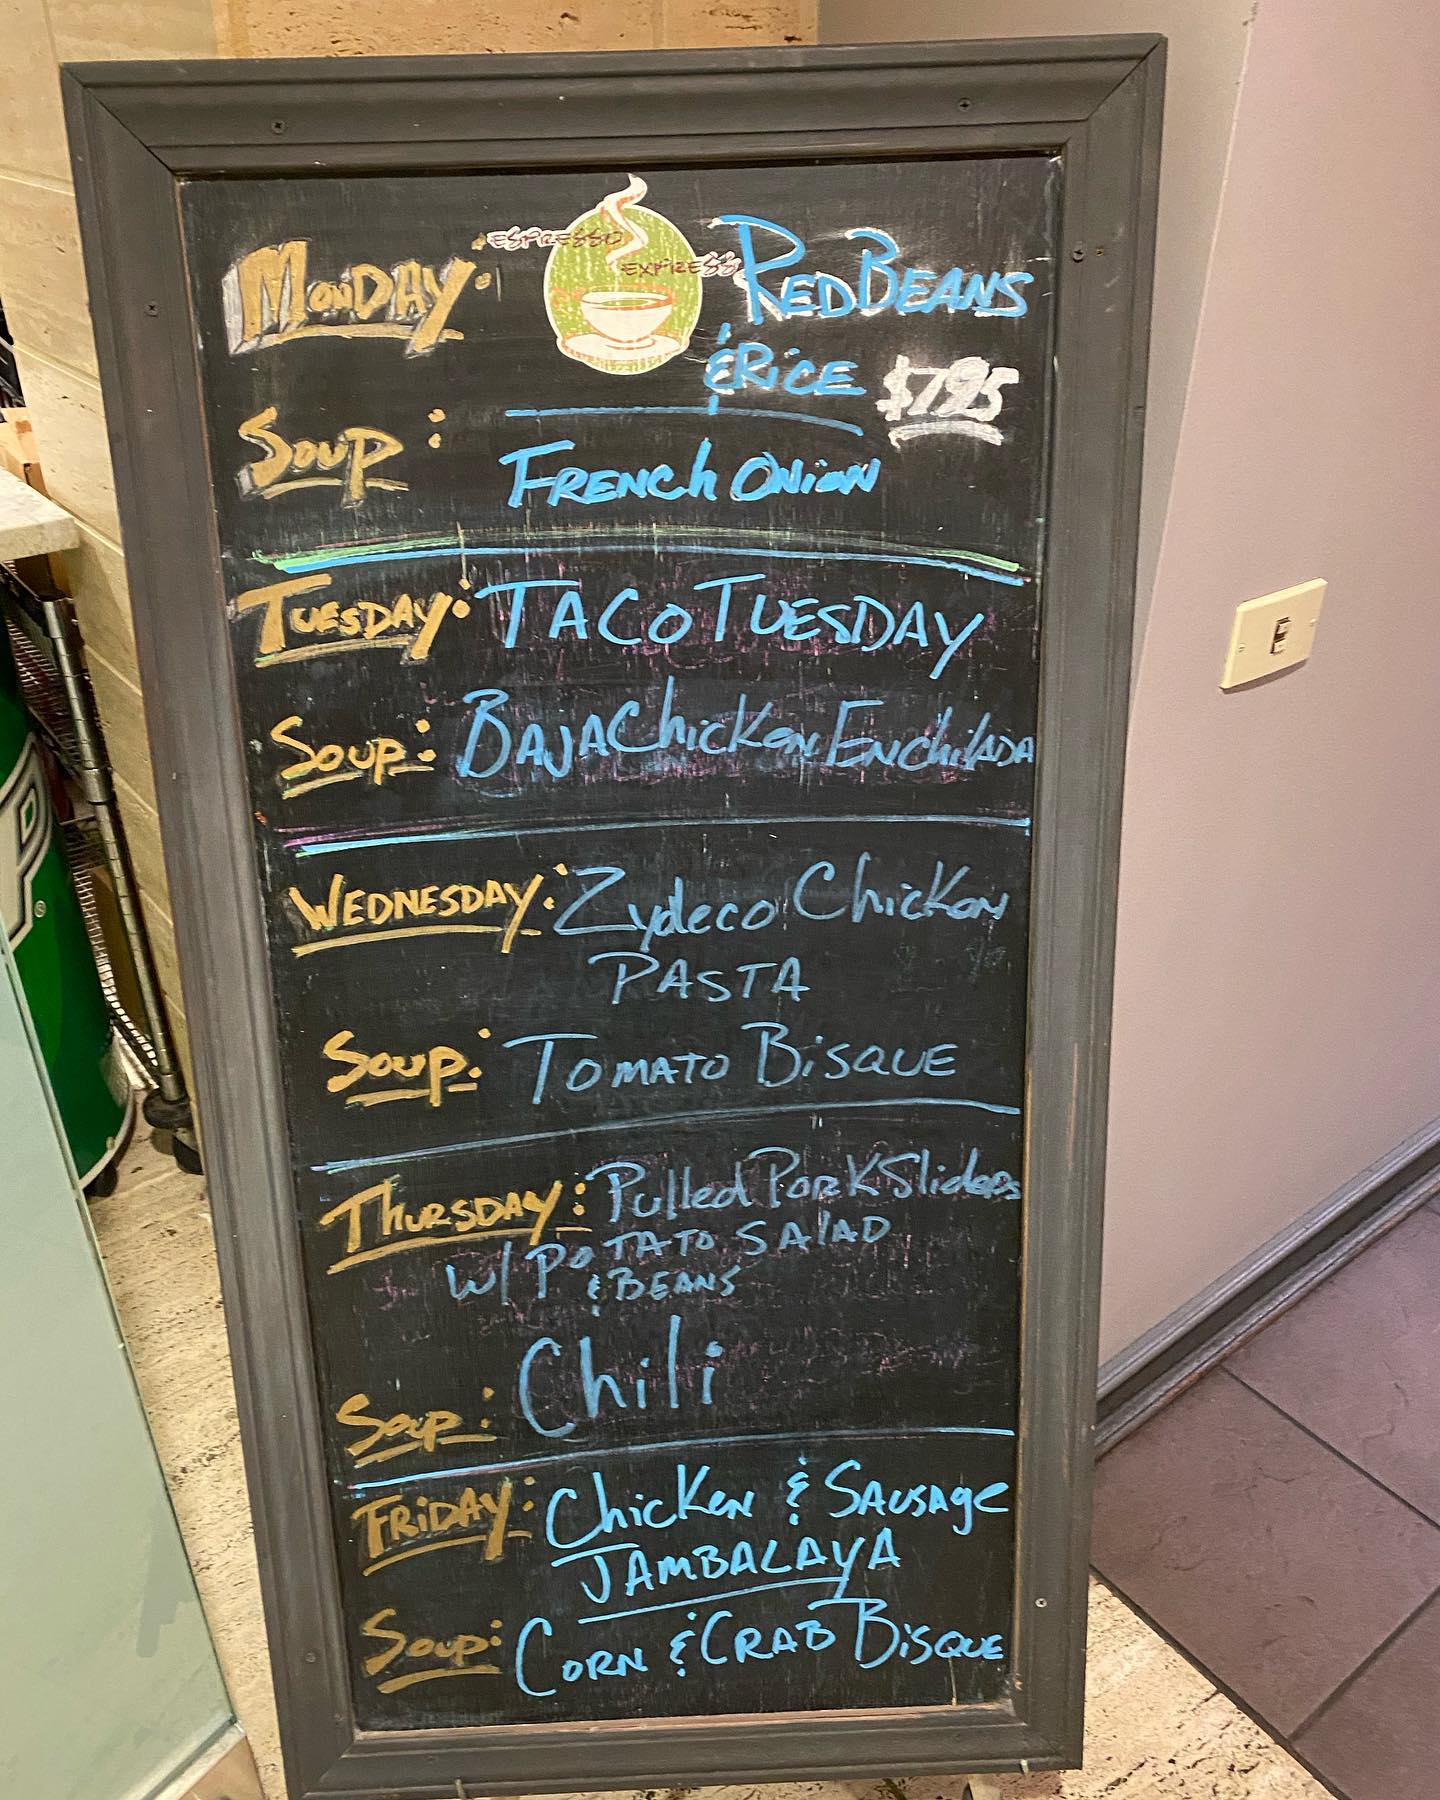 MONDAY:
ESPRESSO
EXPRESS
RED BEANS
& RICE $7.95
SOUP: FRENCH ONION
TUESDAY: TACO TUESDAY
SOUP: BAJA CHICKEN ENCHILADA
WEDNESDAY: Zydeco Chicken
PASTA
SOUP: TOMATO BISQUE
THURSDAY: Pulled Pork Sliders
W/ POTATO SALAD
& BEANS
SOUP: Chili
FRIDAY: Chicken & Sausage
JAMBALAYA
SOUP: CORN & CRAB BISQUE
P
®